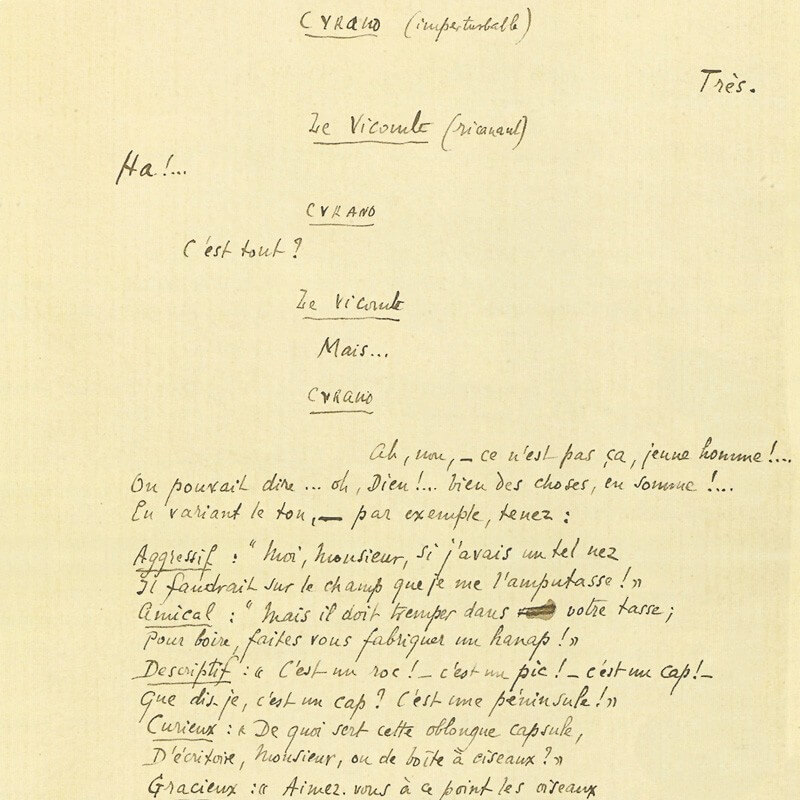 CYRANO (imperturbable)
Très.
Le Vicomte (ricanant)
Ha!...
CYRANO
C'est tout?
Le Vicomte
Mais...
CYRANO
Ah, non, — ce n'est pas ça, jeune homme!...
On pouvait dire... oh, Dieu!... bien des choses, en somme!...
En variant le ton, — par exemple, tenez:
Aggressif : "Moi, Monsieur, si j'avais un tel nez
Il faudrait sur le champ que je me l'amputasse!»
Amical : "Mais il doit tremper dans votre tasse;
Pour boire, faites vous fabriquer un hanap!»
Descriptif : « C'est un roc! — c'est un pic! — c'est un cap! —
Que dis-je, c'est un cap? C'est une péninsule!»
Curieux : « De quoi sert cette oblongue capsule,
D'écritoire, Monsieur, ou de boîte à ciseaux?»
Gracieux : « Aimez-vous à ce point les oiseaux